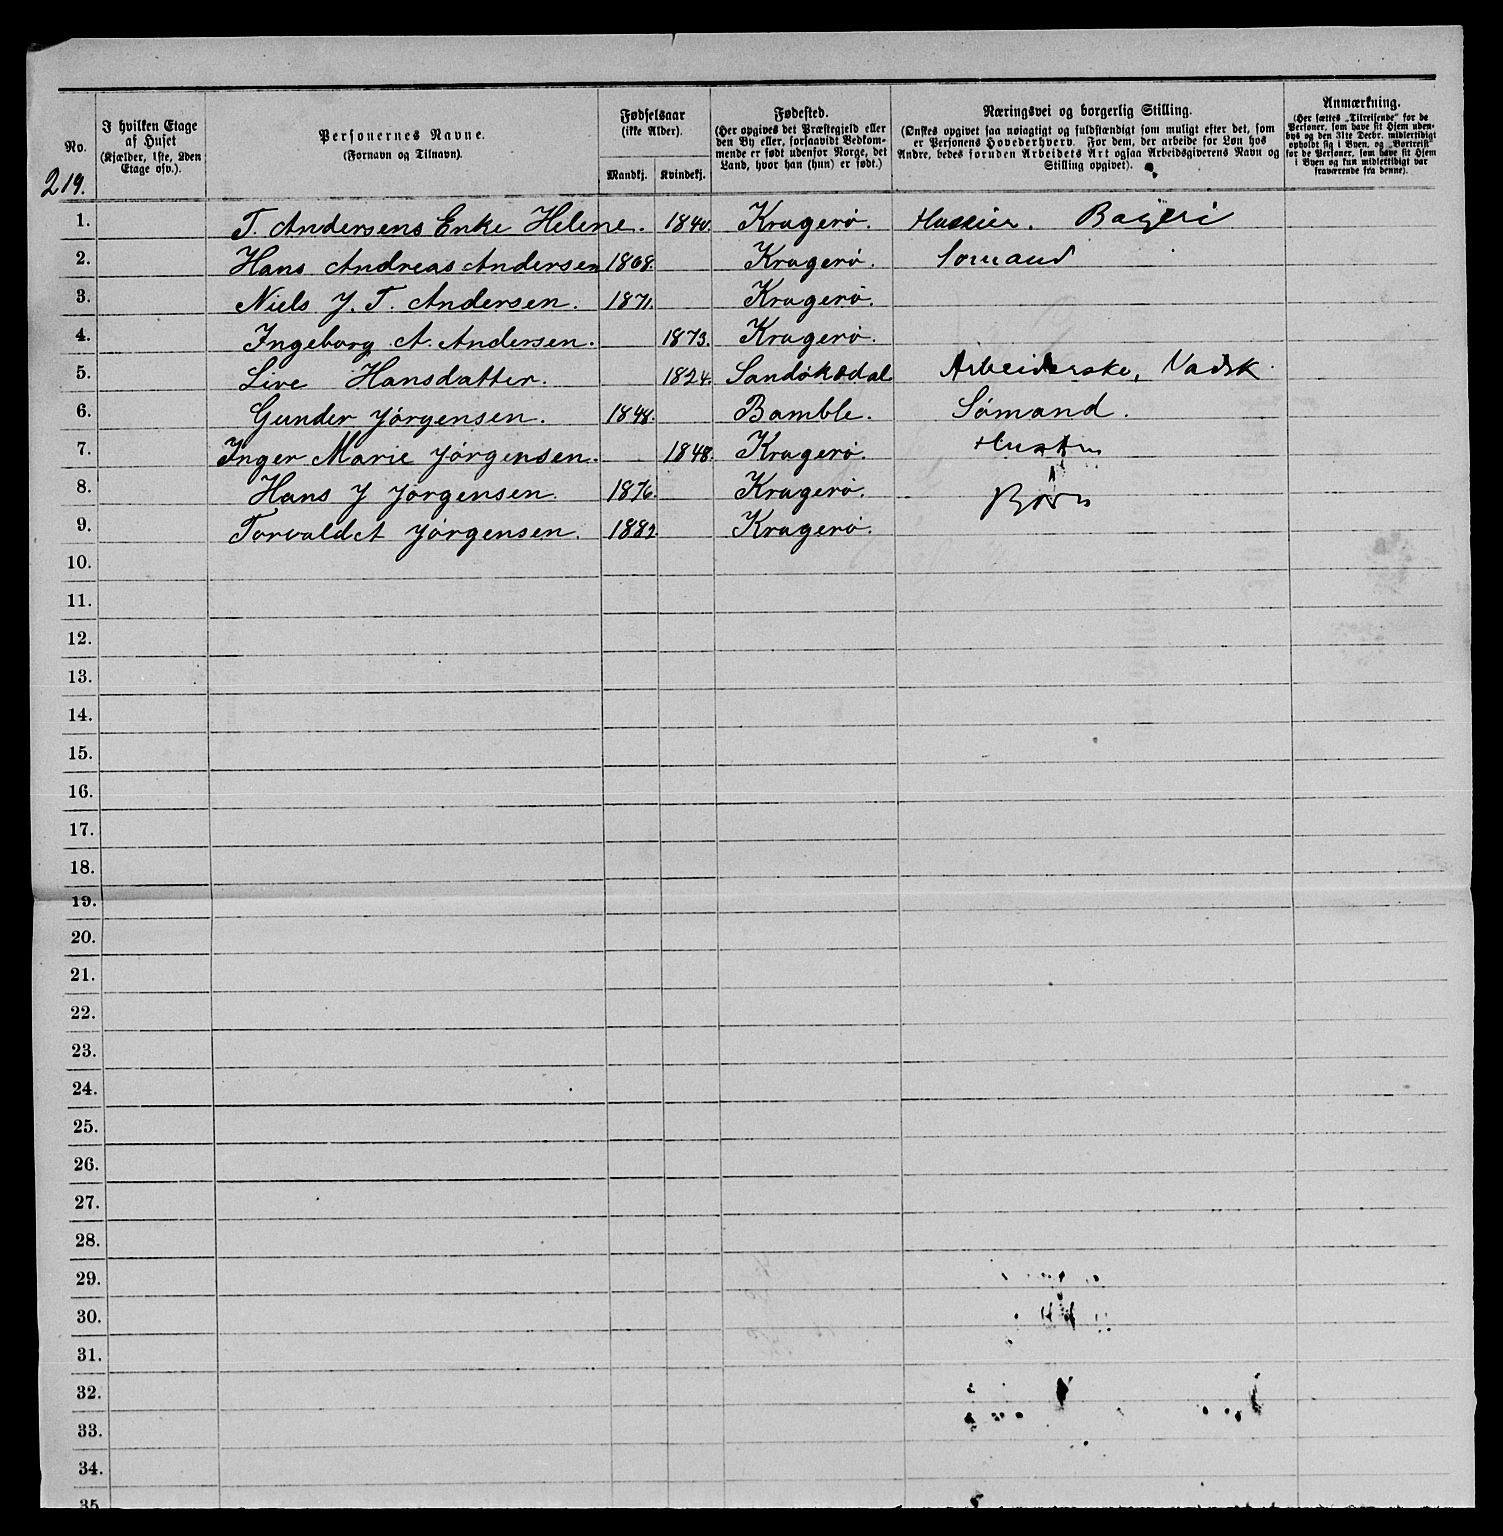 No.
219.
I hvilken Etage
af Huset
(Kjælder, 1ste, 2den
Etage osv.).
Personernes Navne.
(Fornavn og Tilnavn).
Fødselsaar
(ikke Alder).
Mandkj. Kvindekj.
Fødested.
(Her opgives det Præstegjeld eller
den By eller, forsaavidt Vedkom-
mende er født udenfor Norge, det
Land, hvor han (hun) er født.)
Næringsvei og borgerlig Stilling.
(Ønskes opgivet saa nøiagtigt og fuldstændigt som muligt efter det, som
er Personens Hovederhverv. For dem, der arbeide for Løn hos
Andre, bedes foruden Arbeidets Art ogsaa Arbeidsgiverens Navn og
Stilling opgivet).
Anmærkning.
(Her sættes „Tilreisende“ for de
Personer, som have sit Hjem uden-
bys og den 31te Decbr. midlertidigt
opholdt sig i Byen, og „Bortreist“
for de Personer, som have sit Hjem
i Byen og kun midlertidigt var
fraværende fra denne).
1. T. Andersens Enke Helene. 1840. Kragerø. Bageri
2. Hans Andreas Andersen 1868. Kragerø. Sømand
3. Niels J. T. Andersen. 1871. Kragerø.
4. Ingeborg A. Andersen. 1873. Kragerø.
5. Live Hansdatter. 1824. Sandøkedal Arbeiderske, Vadsk
6. Gunder Jørgensen. 1848. Bamble. Sømand.
7. Inger Marie Jørgensen. 1848. Kragerø. Hustru
8. Hans J Jørgensen. 1876. Kragerø. Børn
9. Torvald A Jørgensen. 1882 Kragerø.
10.
11.
12.
13.
14.
15.
16.
17.
18.
19.
20.
21.
22.
23.
24.
25.
26.
27.
28.
29.
30.
31.
32.
33.
34.
35